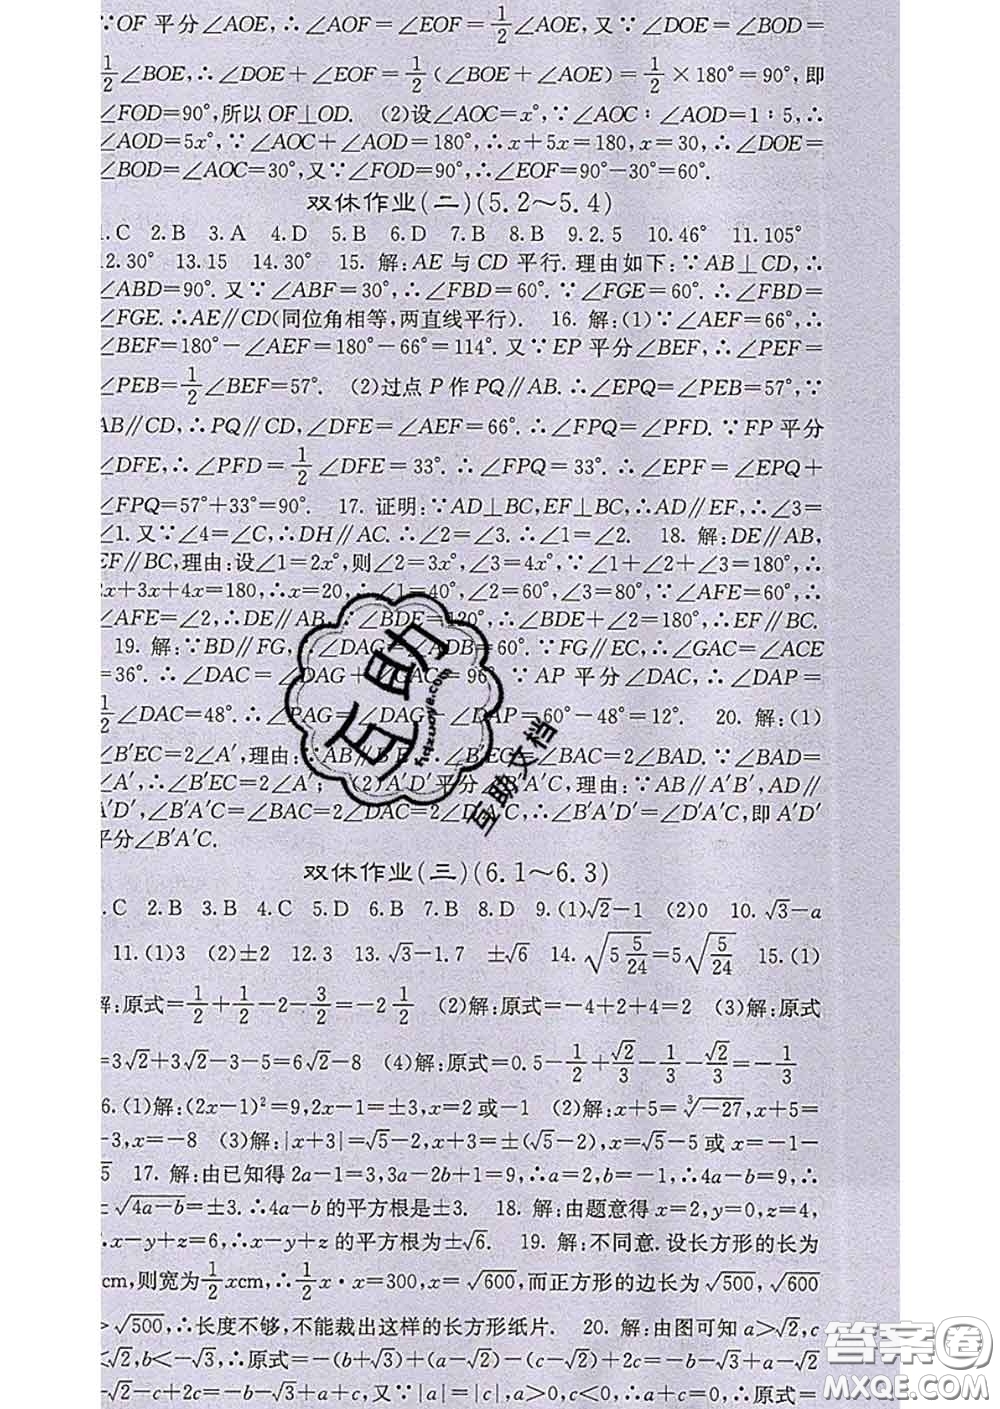 ∵OF 平分∠AOE,∴∠AOF=∠EOF=1/2∠AOE,又∵∠DOE=∠BOD=
1/2∠BOE,∴∠DOE+∠EOF=1/2(∠BOE+∠AOE)=1/2×180°=90°,即
∠FOD=90°,所以 OF⊥OD. (2)设∠AOC=x°,∵∠AOC∶∠AOD=1∶5,∴
∠AOD=5x°,∵∠AOC+∠AOD=180°,∴x+5x=180,x=30,∴∠DOE=
∠BOD=∠AOC=30°,又∵∠FOD=90°,∴∠EOF=90°-30°=60°.
双休作业(二)(5.2~5.4)
.C 2.B 3.A 4.D 5.B 6.D 7.B 8.B 9.2.5 10.46° 11.105°
2.30° 13.15 14.30° 15. 解:AE 与 CD 平行.理由如下:∵AB⊥CD,∴
∠ABD=90°.又∵∠ABF=30°,∴∠FBD=60°.∵∠FGE=60°.∴∠FBD=
∠FGE.∴AE∥CD(同位角相等,两直线平行). 16. 解:(1)∵∠AEF=66°,∴
∠BEF=180°-∠AEF=180°-66°=114°.又∵EP 平分∠BEF,∴∠PEF=
∠PEB=1/2∠BEF=57°. (2)过点 P 作 PQ∥AB.∴∠EPQ=∠PEB=57°,∵
AB∥CD,∴PQ∥CD,∠DFE=∠AEF=66°.∴∠FPQ=∠PFD.∵FP 平分
∠DFE,∴∠PFD=1/2∠DFE=33°.∴∠FPQ=33°.∴∠EPF=∠EPQ+
∠FPQ=57°+33°=90°. 17. 证明:∵AD⊥BC,EF⊥BC,∴AD∥EF,∴∠3=
∠1.又∵∠4=∠C,∴DH∥AC.∴∠2=∠3.∴∠1=∠2. 18. 解:DE∥AB,
EF∥BC,理由:设∠1=2x°,则∠2=3x°,∠3=4x°,∵∠1+∠2+∠3=180°,∴
2x+3x+4x=180,∴x=20,∴∠1=40°,∠2=60°,∠3=80°,∵∠AFE=60°,∴
∠AFE=∠2,∴DE∥AB.∵∠BDE=120°,∴∠BDE+∠2=180°,∴EF∥BC.
19. 解:∵BD∥FG,∴∠DAG=∠ADB=60°.∵FG∥EC,∴∠GAC=∠ACE
=36°.∴∠DAC=∠DAG+∠GAC=96°.∵AP 平分∠DAC,∴∠DAP=
1/2∠DAC=48°.∴∠PAG=∠DAG-∠DAP=60°-48°=12°. 20. 解:(1)
∠B′EC=2∠A′,理由:∵AB∥B′E,∴∠B′EC=∠BAC=2∠BAD.∵∠BAD=
∠A′,∴∠B′EC=2∠A′; (2)A′D′平分∠B′A′C,理由:∵AB∥A′B′,AD∥
A′D′,∠B′A′C=∠BAC=2∠DAC=2∠D′A′C,∴∠B′A′D′=∠D′A′C,即 A′D′
平分∠B′A′C.
双休作业(三)(6.1~6.3)
.C 2.B 3.B 4.C 5.D 6.B 7.B 8.D 9.(1)√2-1 (2)0 10.√3-a
11.(1)3 (2)±2 12.3 13.√3-1.7 ±√6 14.√(5 5/24)=5√(5/24) 15.(1)
解:原式=1/2+1/2-2-3/2=-2 1/2 (2)解:原式=-4+2+4=2 (3)解:原式
=3√2+3√2-3-5=6√2-8 (4)解:原式=0.5-1/2+√2/3-1/3-√2/3=-1/3
6.(1)解:(2x-1)²=9,2x-1=±3,x=2 或-1 (2)解:x+5=∛-27,x+5=
-3,x=-8 (3)解:|x+3|=√5-2,x+3=±(√5-2),x=√5-5 或 x=-1-
√5 17. 解:由已知得 2a-1=3,3a-2b+1=9,∴a=2,b=-1,∴4a-b=9,∴
±√(4a-b)=±3.∴4a-b 的平方根是±3. 18. 解:由题意得 x=2,y=0,z=4,
∴x-y+z=6,∴x-y+z 的平方根为±√6. 19. 解:不同意.设长方形的长为
cm,则宽为1/2xcm,∴1/2x·x=300,x=√600,而正方形的边长为√500,√600
>√500,∴长度不够,不能裁出这样的长方形纸片. 20. 解:由图可知 a>√2,c
<√2,b<-√3,∴原式=-(b+√3)+(a-√2)-(c-√2)+2c=-b-√3+a-√2
-√2-c+2c=-b-√3+a+c,又∵|a|=|c|,a>0,c<0,∴a+c=0,∴原式=
互助
hdzuoye.com
互助文档
答案圈
MXQE.COM